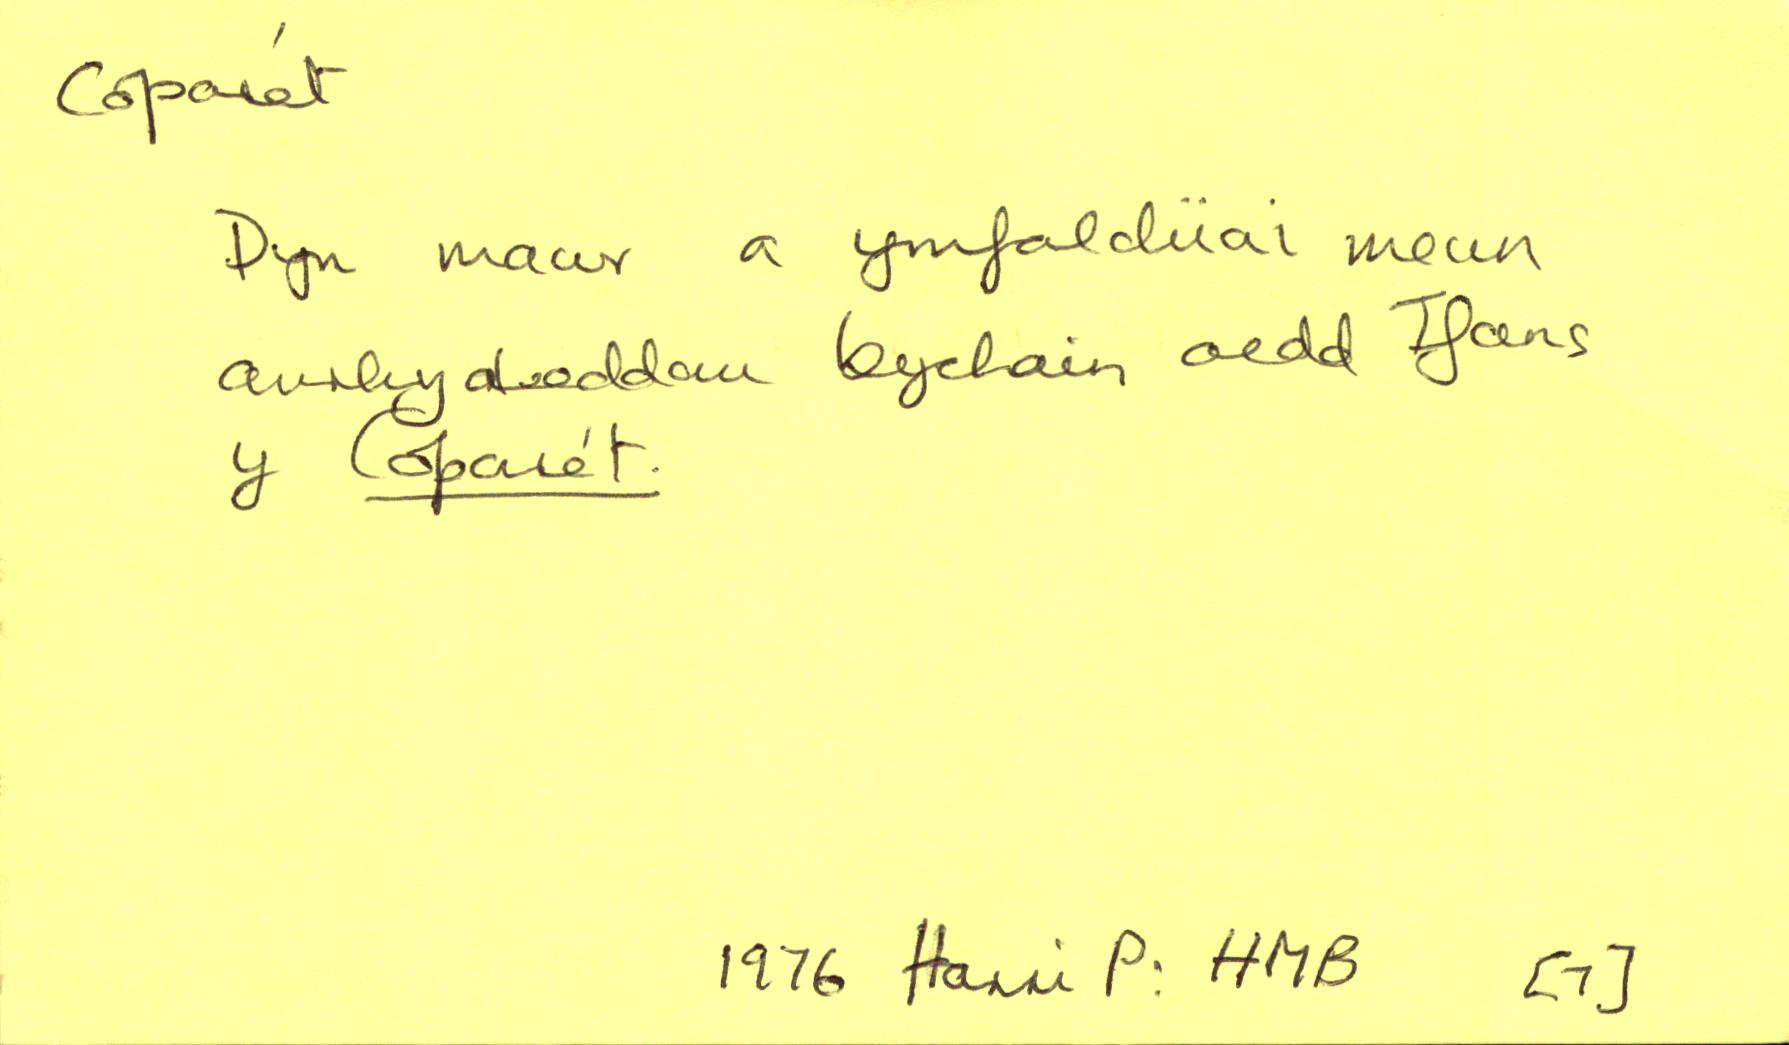 Coparét
Dyn mawr a ymfalchïai mewn
anrhydeddau bychain oedd Ifans
y Coparét.
1976 Harri P: HMB [7]